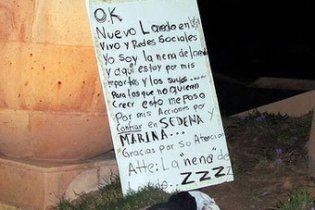 OK
Nuevo Laredo en
Vivo y Redes Sociales
Yo soy la nena de Laredo
y aqui estoy por mis
reportes y los suyos...
Para los que no quieren
Creer esto me paso
Por mis Acciones por
Confiar en SEDENA y
MARINA...
Gracias por su Atencion
Atte: La "nena" de
ZZZ